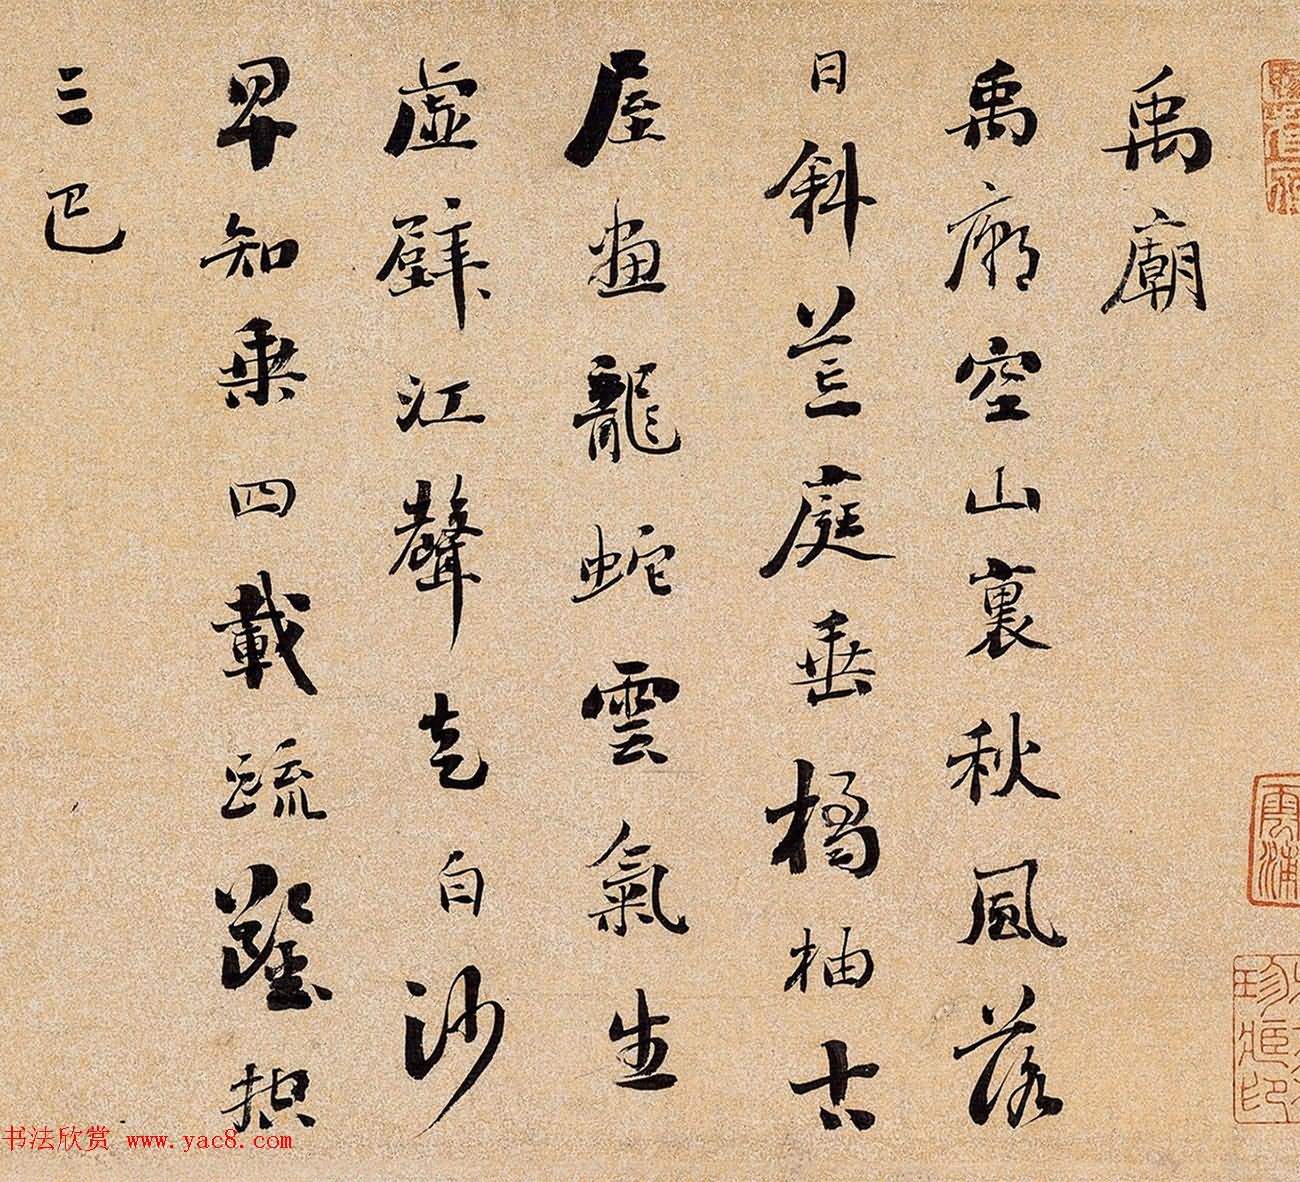 禹廟
禹廟空山裏秋風落
日斜荒庭垂橘柚古
屋畫龍蛇雲氣生
虛壁江聲走白沙
早知乘四載疏鑿控
三巴
书法欣赏 www.yac8.com